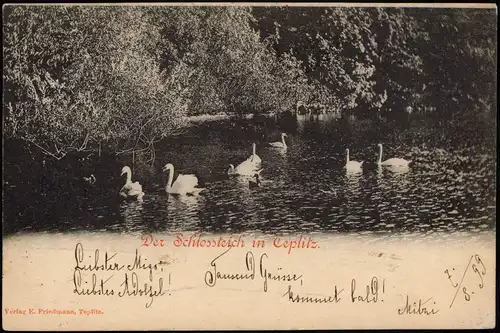 Der Schlossteich in Teplitz.
Liebster Migo,
Liebstes Adolzel!
Tausend Grüsse,
kommet bald!
Mitzi
8. 99
Verlag E. Friedmann, Teplitz.